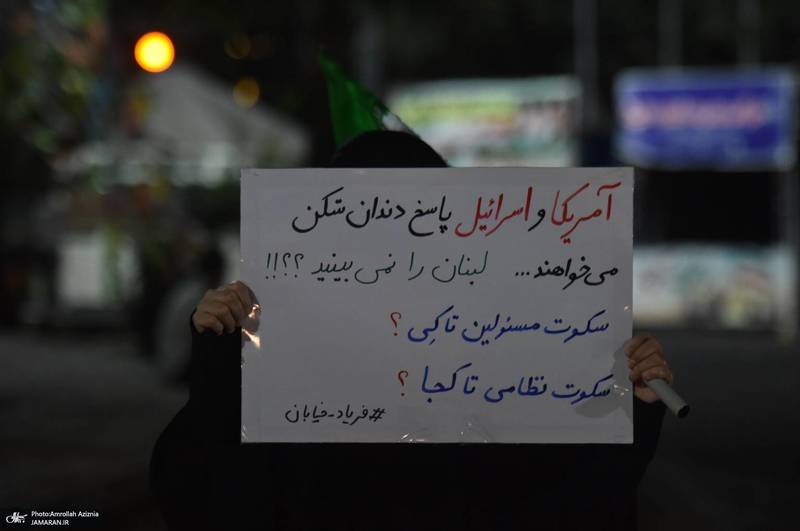 آمریکا و اسرائیل پاسخ دندان شکن
می‌خواهند... لبنان را نمی بینید ؟؟!!
سکوت مسئولین تا کِی ؟
سکوت نظامی تا کجا ؟
#فریاد-خیابان
Photo:Amrollah Aziznia
JAMARAN.IR